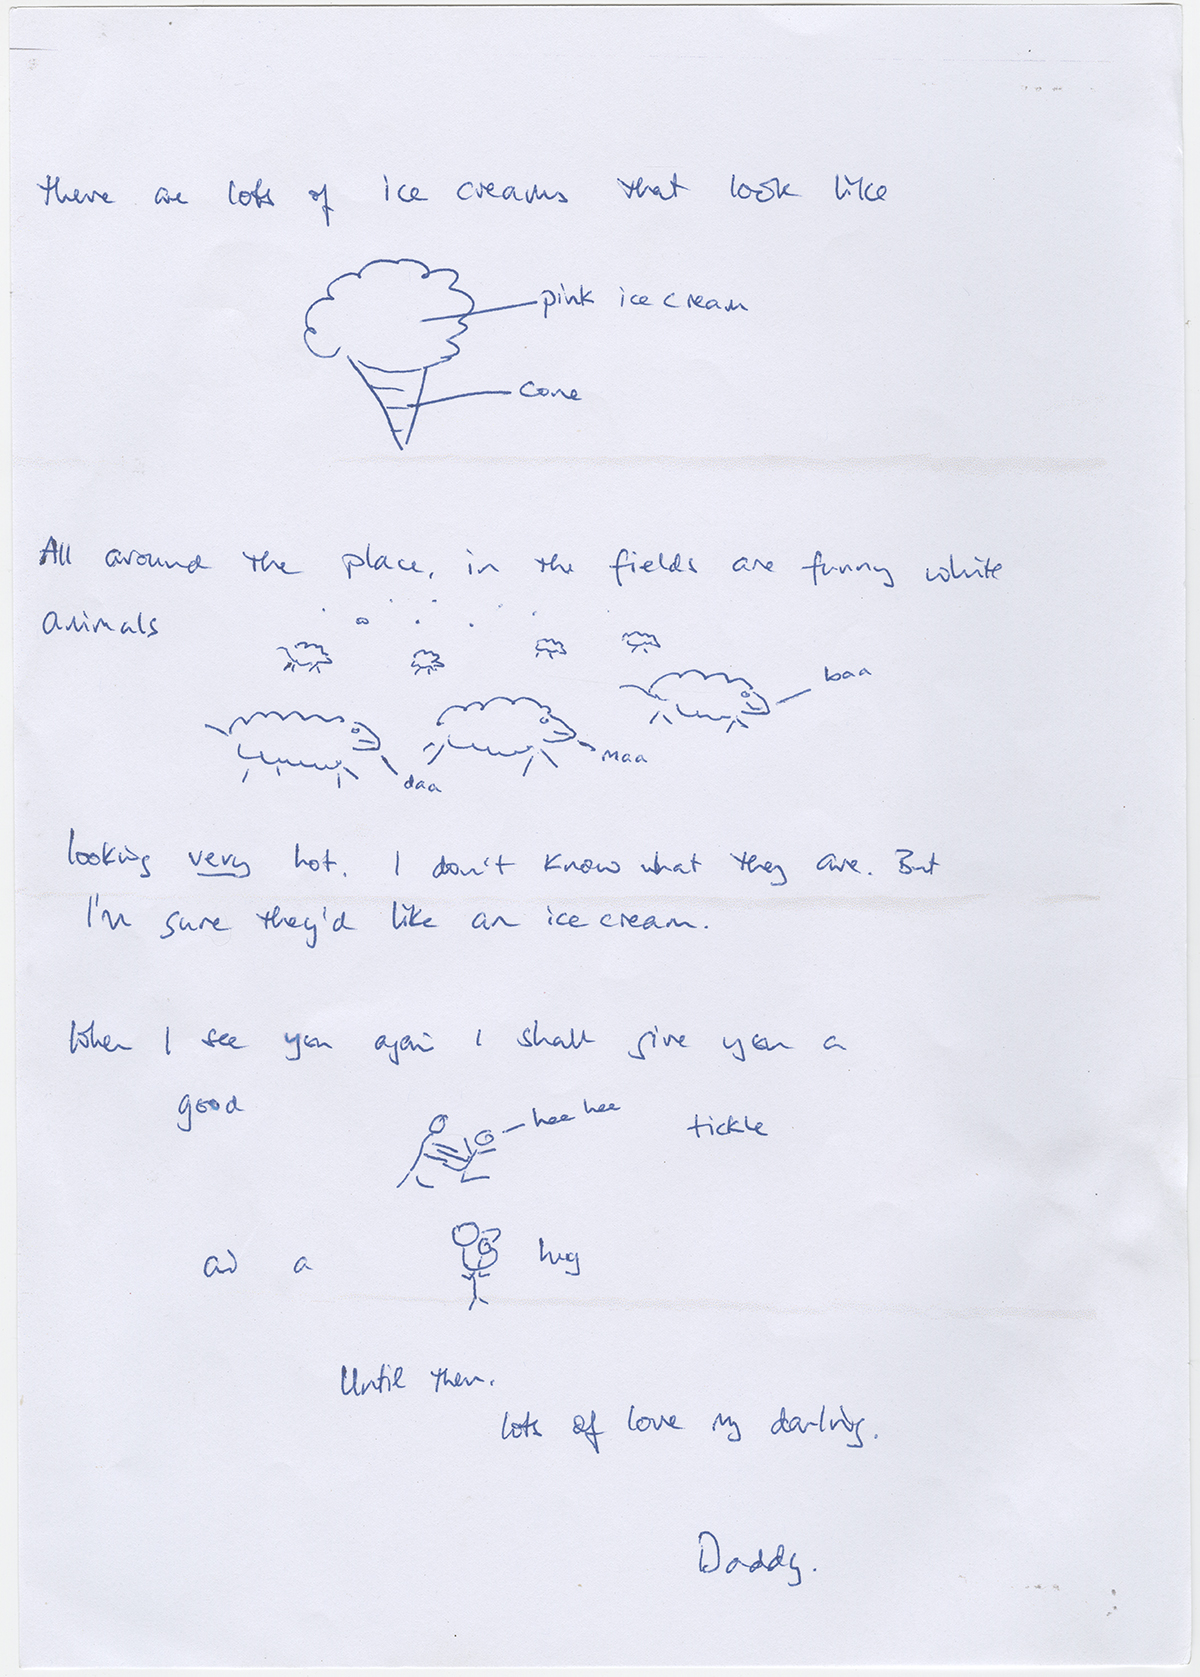 there are lots of ice creams that look like
pink ice cream
cone
All around the place, in the fields are funny white
animals
baa
maa
daa
looking very hot. I don't know what they are. But
I'm sure they'd like an ice cream.
When I see you again I shall give you a
good
hee hee
tickle
and a
hug
Until then.
lots of love my darling.
Daddy.